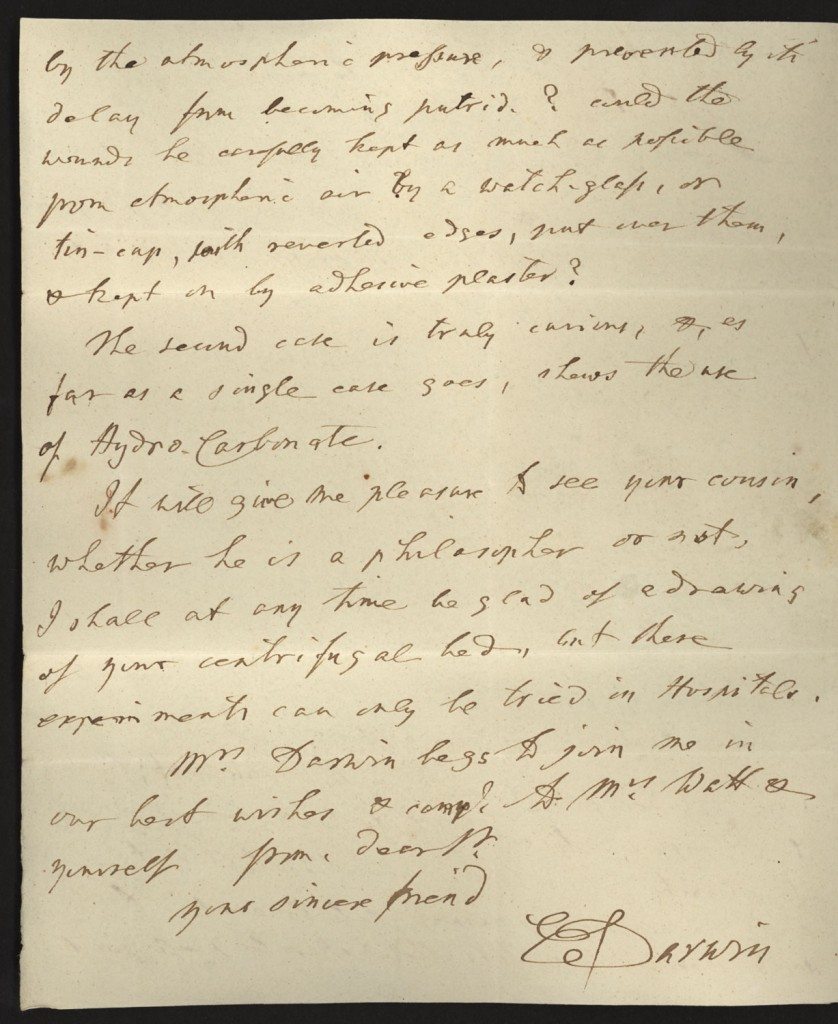 by the atmospheric pressure, & prevented by its
delay from becoming putrid.? could the
wounds be carefully kept as much as possible
from atmospheric air by a watch-glass, or
tin-cap, with reverted edges, put over them,
& kept on by adhesive plaster?
The second case is truly curious, &, as
far as a single case goes, shows the use
of Hydro-Carbonate.
It will give me pleasure to see your cousin,
whether he is a philosopher or not,
I shall at any time be glad of a drawing
of your centrifugal bed, but these
experiments can only be tried in Hospitals.
Mrs Darwin begs to join me in
our best wishes & compts. to Mrs Watt &
yourself from, dear Sr.
your sincere friend
E Darwin